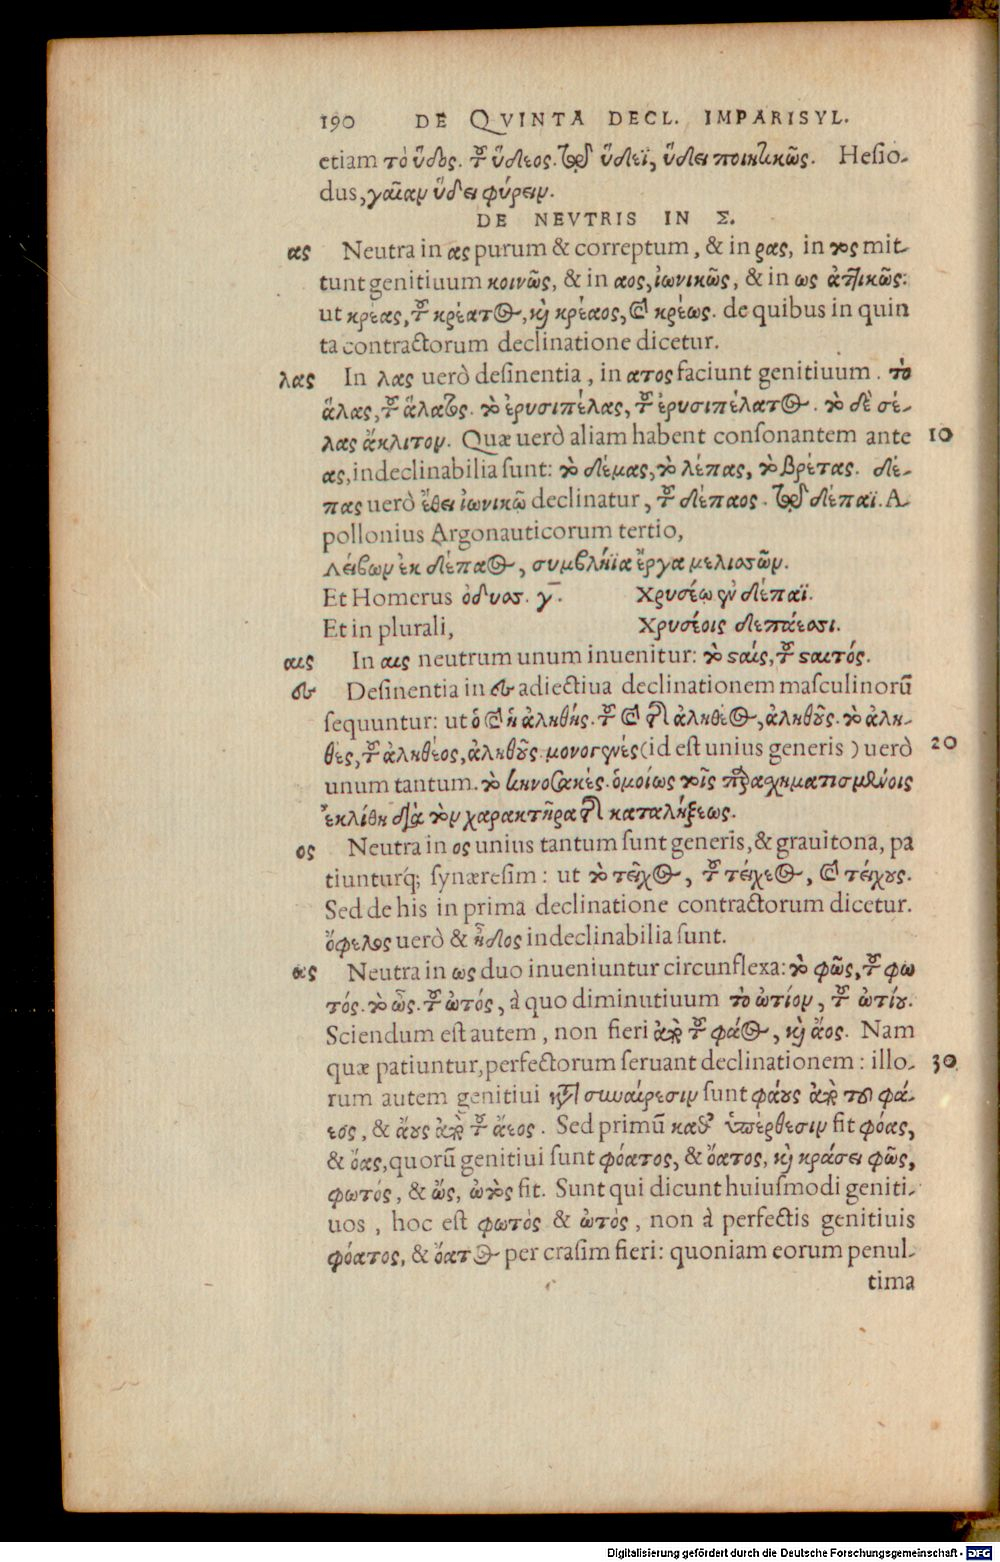 190 DE QVINTA DECL. IMPARISYL.
etiam τὸ ὕδος. τοῦ ὕδεος. τῷ ὕδεϊ, ὕδει ποιητικῶς. Hesio-
dus, γαῖαν ὕδει φύρειν.
DE NEVTRIS IN Σ.
ας Neutra in ας purum & correptum, & in ρας, in τος mit-
tunt genitiuum κοινῶς, & in αος, ἰωνικῶς, & in ως ἀττικῶς:
ut κρέας, τοῦ κρέατος, καὶ κρέαος, καὶ κρέως. de quibus in quin
ta contractorum declinatione dicetur.
λας In λας uerò desinentia, in ατος faciunt genitiuum. τὸ
ἅλας, τοῦ ἅλατος. τὸ ἐρυσιπέλας, τοῦ ἐρυσιπέλατος. τὸ δὲ σέ-
λας ἄκλιτον. Quæ uerò aliam habent consonantem ante 10
ας, indeclinabilia sunt: τὸ δέμας, τὸ λέπας, τὸ βρέτας. δέ-
πας uerò ἔθει ἰωνικῷ declinatur, τοῦ δέπαος. τῷ δέπαϊ. A-
pollonius Argonauticorum tertio,
Λείβων ἐκ δέπαος, συμβλήϊα ἔργα μελισσῶν.
Et Homerus ὀδυσσ. γ̅. Χρυσέῳ ἐν δέπαϊ.
Et in plurali, Χρυσέοις δεπάεσσι.
αις In αις neutrum unum inuenitur: τὸ σταίς, τοῦ σταιτός.
ες Desinentia in ες adiectiua declinationem masculinorū
sequuntur: ut ὁ καὶ ἡ ἀληθής. τοῦ καὶ τῆς ἀληθέος, ἀληθοῦς. τὸ ἀλη-
θές, τοῦ ἀληθέος, ἀληθοῦς. μονογενὲς (id est unius generis) uerò 20
unum tantum. τὸ κηνοσακές. ὁμοίως τοῖς παρασχηματισμένοις
ἐκλίθη διὰ τὸν χαρακτῆρα τῆς καταλήξεως.
ος Neutra in ος unius tantum sunt generis, & grauitona, pa
tiunturq́; synæresim: ut τὸ τεῖχος, τοῦ τείχεος, καὶ τείχους.
Sed de his in prima declinatione contractorum dicetur.
ὄφελος uerò & ἦδος indeclinabilia sunt.
ως Neutra in ως duo inueniuntur circunflexa: τὸ φῶς, τοῦ φω
τός. τὸ ὦς. τοῦ ὠτός, à quo diminutiuum τὸ ὠτίον, τοῦ ὠτίου.
Sciendum est autem, non fieri ἀπὸ τοῦ φάος, καὶ ἄος. Nam
quæ patiuntur, perfectorum seruant declinationem: illo- 30
rum autem genitiui κατὰ συναίρεσιν sunt φάους ἀπὸ τοῦ φά-
εος, & ἄους ἀπὸ τοῦ ἄεος. Sed primū καθ' ὑπέρθεσιν fit φόας,
& ὄας, quorū genitiui sunt φόατος, & ὄατος, καὶ κράσει φῶς,
φωτός, & ὦς, ὠτὸς fit. Sunt qui dicunt huiusmodi geniti-
uos, hoc est φωτὸς & ὠτὸς, non à perfectis genitiuis
φόατος, & ὄατος per crasim fieri: quoniam eorum penul-
tima
Digitalisierung gefördert durch die Deutsche Forschungsgemeinschaft - DFG